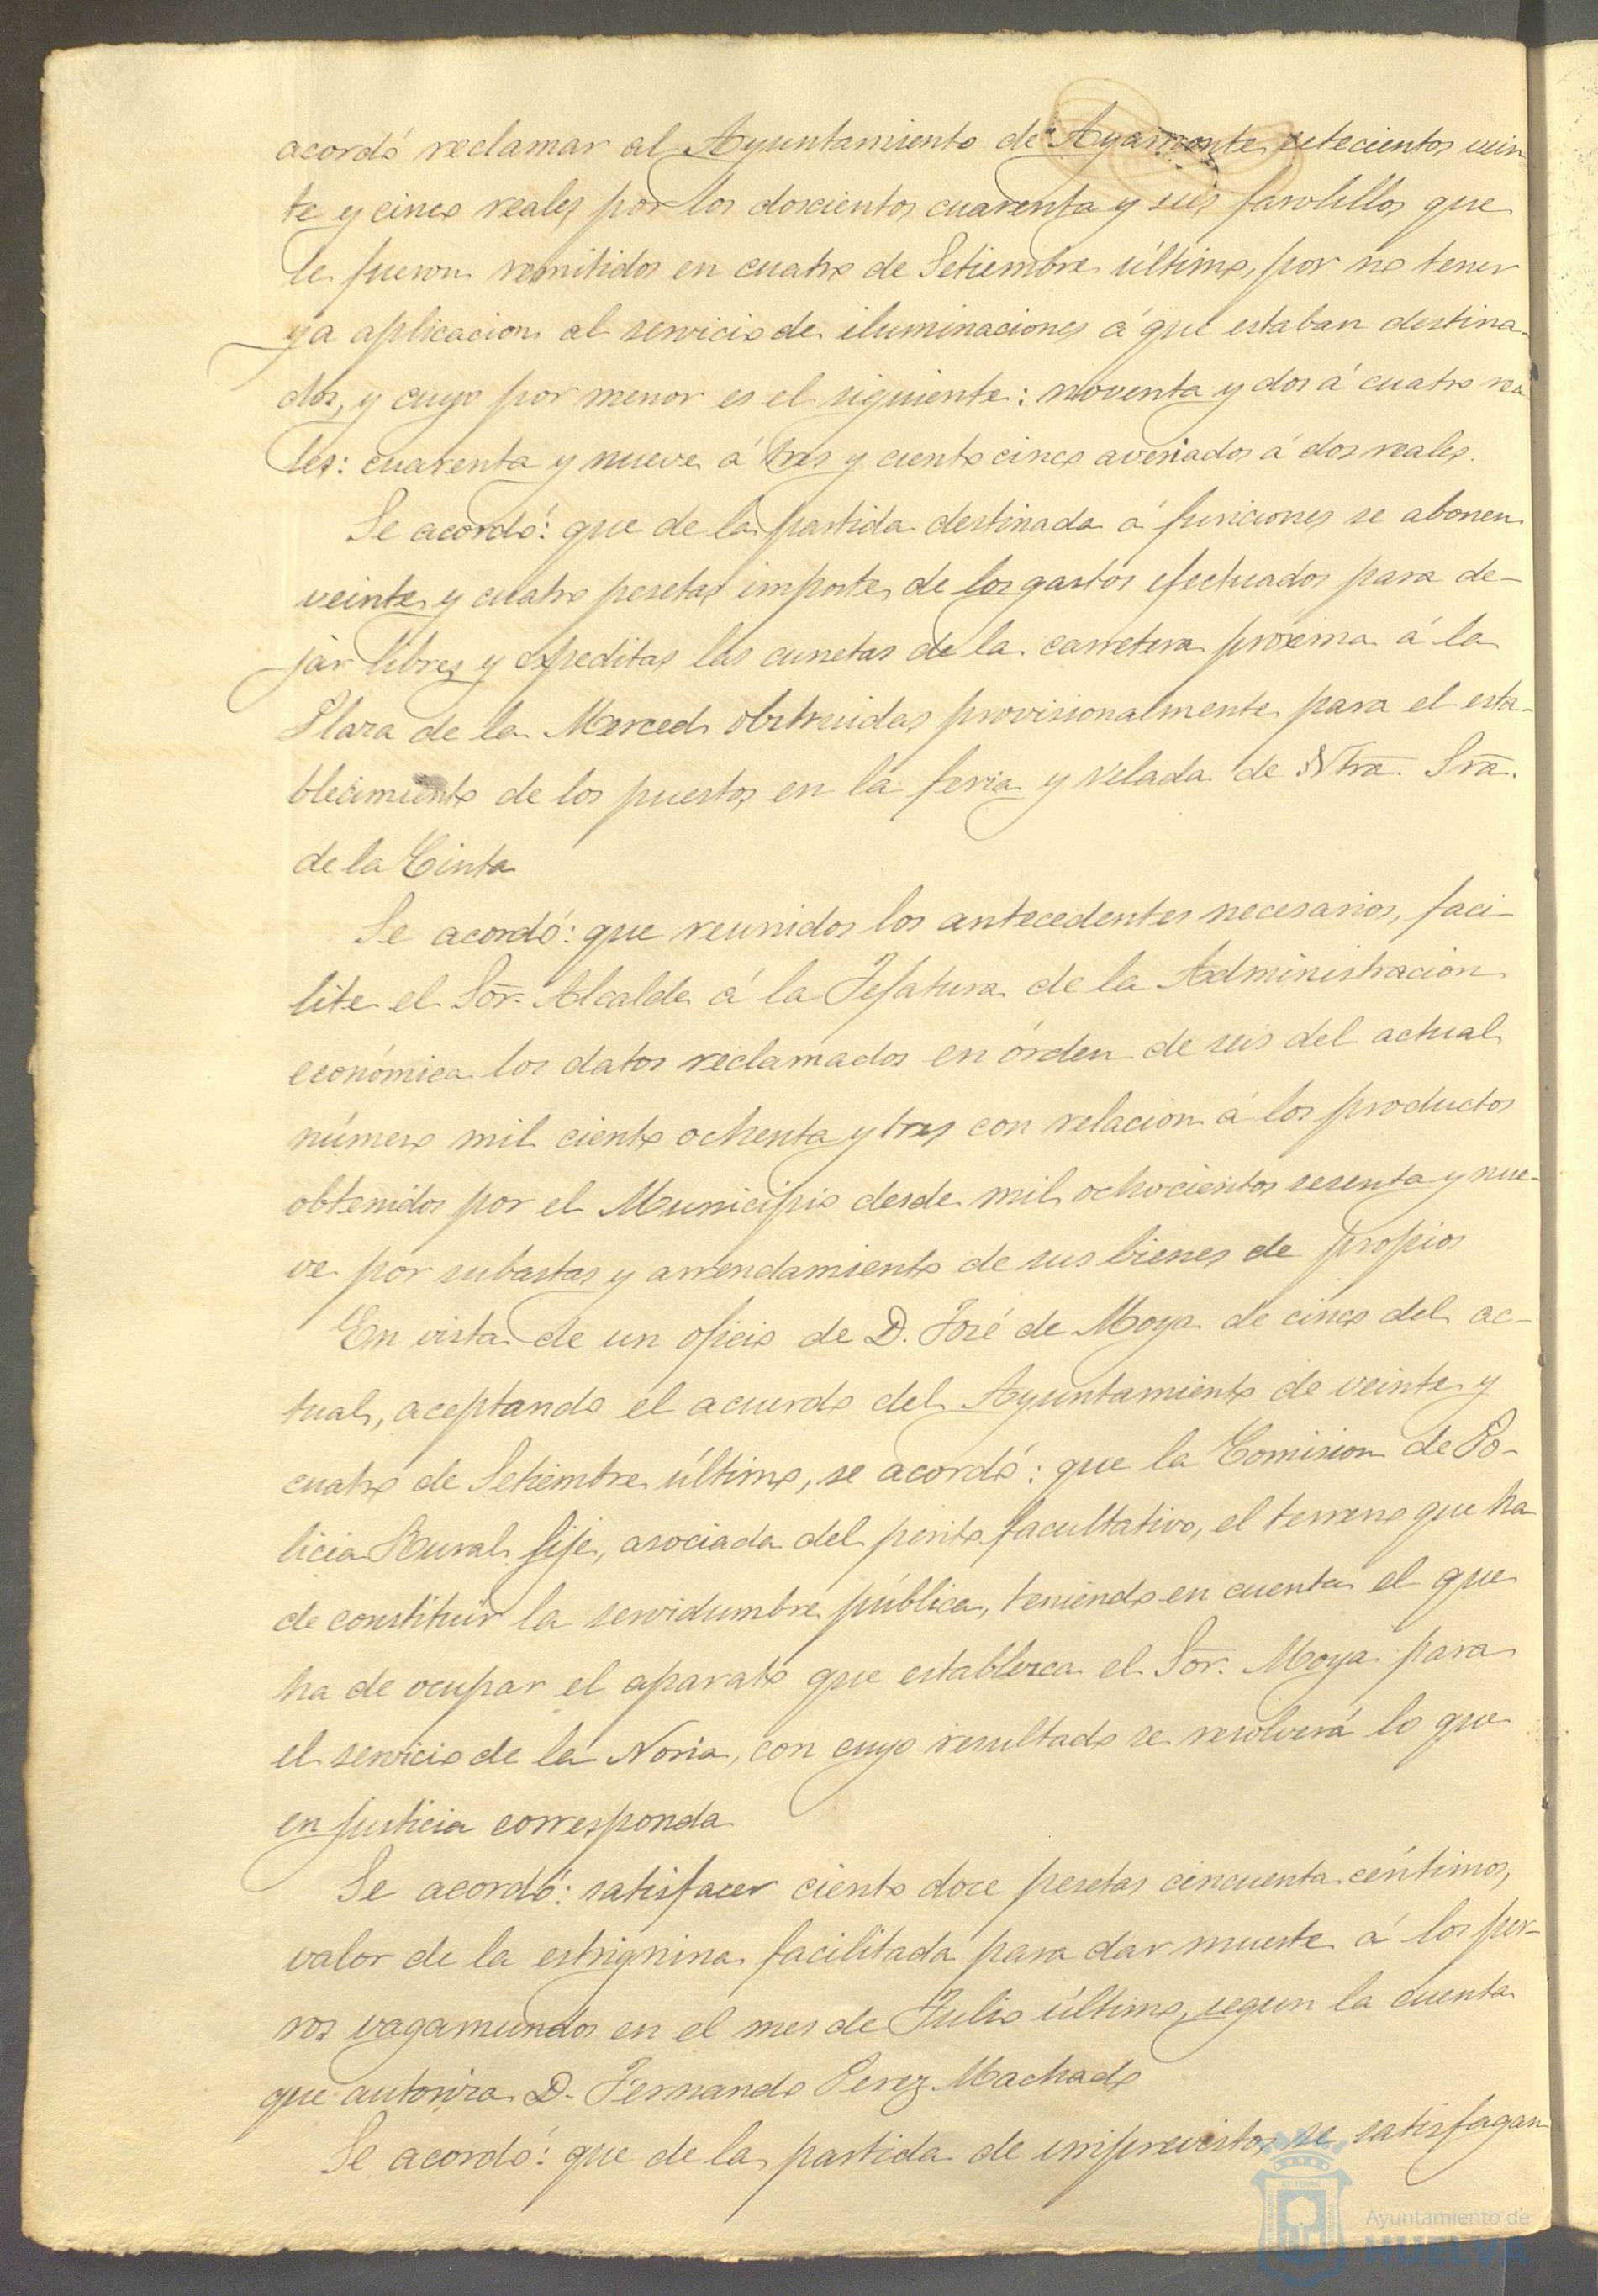 acordó reclamar al Ayuntamiento de Ayamonte setecientos vein
te y cinco reales por los doscientos cuarenta y seis farolillos que
le fueron remitidos en cuatro de Setiembre último, por no tener
ya aplicacion al servicio de iluminaciones á que estaban destina-
dos, y cuyo por menor es el siguiente: noventa y dos á cuatro rea
les: cuarenta y nueve á tres y ciento cinco averiados á dos reales.
Se acordó: que de la partida destinada á funciones se abonen
veinte y cuatro pesetas importe de los gastos efectuados para de-
jar libres y expeditas las cunetas de la carretera próxima á la
Plaza de la Merced obstruidas provisionalmente para el esta-
blecimiento de los puestos en la feria y velada de Ntra. Sra.
de la Cinta
Se acordó: que reunidos los antecedentes necesarios, faci-
lite el Sor. Alcalde á la Jefatura de la Administracion
económica los datos reclamados en órden de seis del actual
número mil ciento ochenta y tres con relacion á los productos
obtenidos por el Municipio desde mil ochocientos sesenta y nue-
ve por subastas y arrendamiento de sus bienes de propios
En vista de un oficio de D. José de Moya de cinco del ac-
tual, aceptando el acuerdo del Ayuntamiento de veinte y
cuatro de Setiembre último, se acordó: que la Comision de Po-
licia Rural fije, asociada del perito facultativo, el terreno que ha
de constituir la servidumbre pública, teniendo en cuenta el que
ha de ocupar el aparato que establezca el Sor. Moya para
el servicio de la Noria, con cuyo resultado se resolverá lo que
en justicia corresponda
Se acordó: satisfacer ciento doce pesetas cincuenta céntimos,
valor de la estrignina facilitada para dar muerte á los per-
ros vagamundos en el mes de Julio último, segun la cuenta
que autoriza D. Fernando Perez Machado
Se acordó: que de la partida de imprevistos se satisfagan
Ayuntamiento de
HUELVA